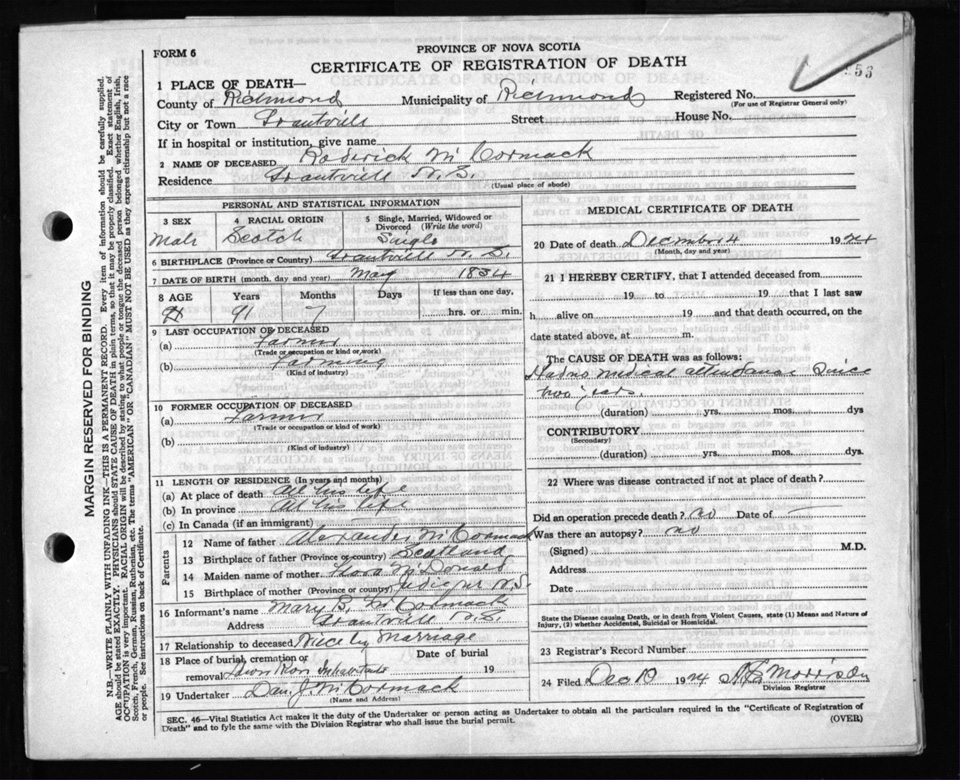 FORM 6
PROVINCE OF NOVA SCOTIA
CERTIFICATE OF REGISTRATION OF DEATH
53
1 PLACE OF DEATH—
County of Richmond Municipality of Richmond Registered No.
(For use of Registrar General only)
City or Town Grantville Street House No.
If in hospital or institution, give name
2 NAME OF DECEASED Roderick McCormack
Residence Grantville N.S.
(Usual place of abode)
PERSONAL AND STATISTICAL INFORMATION
3 SEX 4 RACIAL ORIGIN 5 Single, Married, Widowed or Divorced (Write the word)
Male Scotch Single
6 BIRTHPLACE (Province or Country) Grantville N.S.
7 DATE OF BIRTH (month, day and year) May 1834
8 AGE Years Months Days If less than one day,
91 7 hrs. or min.
9 LAST OCCUPATION OF DECEASED
(a) Farmer
(Trade or occupation or kind of work)
(b) Farming
(Kind of industry)
10 FORMER OCCUPATION OF DECEASED
(a) Farmer
(Trade or occupation or kind of work)
(b)
(Kind of industry)
11 LENGTH OF RESIDENCE (In years and months)
(a) At place of death All his life
(b) In province All his life
(c) In Canada (if an immigrant)
Parents
12 Name of father Alexander McCormack
13 Birthplace of father (Province or country) Scotland
14 Maiden name of mother Flora McDonald
15 Birthplace of mother (Province or country) N.S.
16 Informant's name Mary B. McCormack
Address Grantville N.S.
17 Relationship to deceased Niece by Marriage
18 Place of burial, cremation or removal Date of burial 19
19 Undertaker Dan. J. McCormack
(Name and Address)
MEDICAL CERTIFICATE OF DEATH
20 Date of death December 4 1924
(Month, day and year)
21 I HEREBY CERTIFY, that I attended deceased from
19 to 19 that I last saw
h alive on 19 and that death occurred, on the
date stated above, at m.
The CAUSE OF DEATH was as follows:
Had no medical attendance Since
two years.
(duration) yrs. mos. dys
CONTRIBUTORY
(Secondary)
(duration) yrs. mos. dys.
22 Where was disease contracted if not at place of death?
Did an operation precede death? no Date of —
Was there an autopsy? no
(Signed) M.D.
Address
Date
State the Disease causing Death, or in death from Violent Causes, state (1) Means and Nature of
Injury, (2) whether Accidental, Suicidal or Homicidal.
23 Registrar's Record Number
24 Filed Dec 1924 Morrison
Division Registrar
SEC. 46—Vital Statistics Act makes it the duty of the Undertaker or person acting as Undertaker to obtain all the particulars required in the "Certificate of Registration of
Death" and to fyle the same with the Division Registrar who shall issue the burial permit.
(OVER)
MARGIN RESERVED FOR BINDING
N.B.—WRITE PLAINLY WITH UNFADING INK—THIS IS A PERMANENT RECORD. Every item of information should be carefully supplied.
AGE should be stated EXACTLY. PHYSICIANS should STATE CAUSE OF DEATH in plain terms, so that it may be properly classified. Exact statement of
OCCUPATION is very important. RACIAL ORIGIN will be described by stating to what people or tongue the deceased person belonged whether English, Irish,
Scotch, French, German, Russian, Ruthenian, etc. The terms "AMERICAN" OR "CANADIAN" MUST NOT BE USED as they express citizenship but not a race
or people. See instructions on back of Certificate.